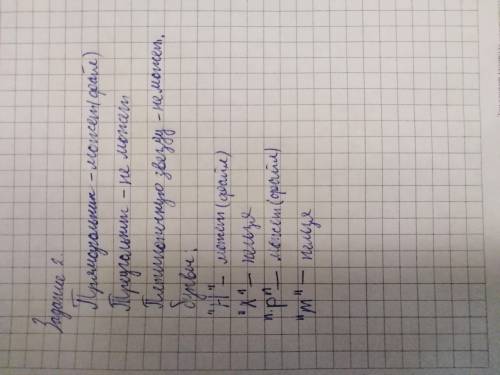 Задание 2.
Прямоугольник - может (файл)
Треугольник - не может
Пятиконечную звезду - не может.
Буквы:
"Н" - может (файл)
"Х" - нельзя
"Р" - может (файл)
"М" - нельзя